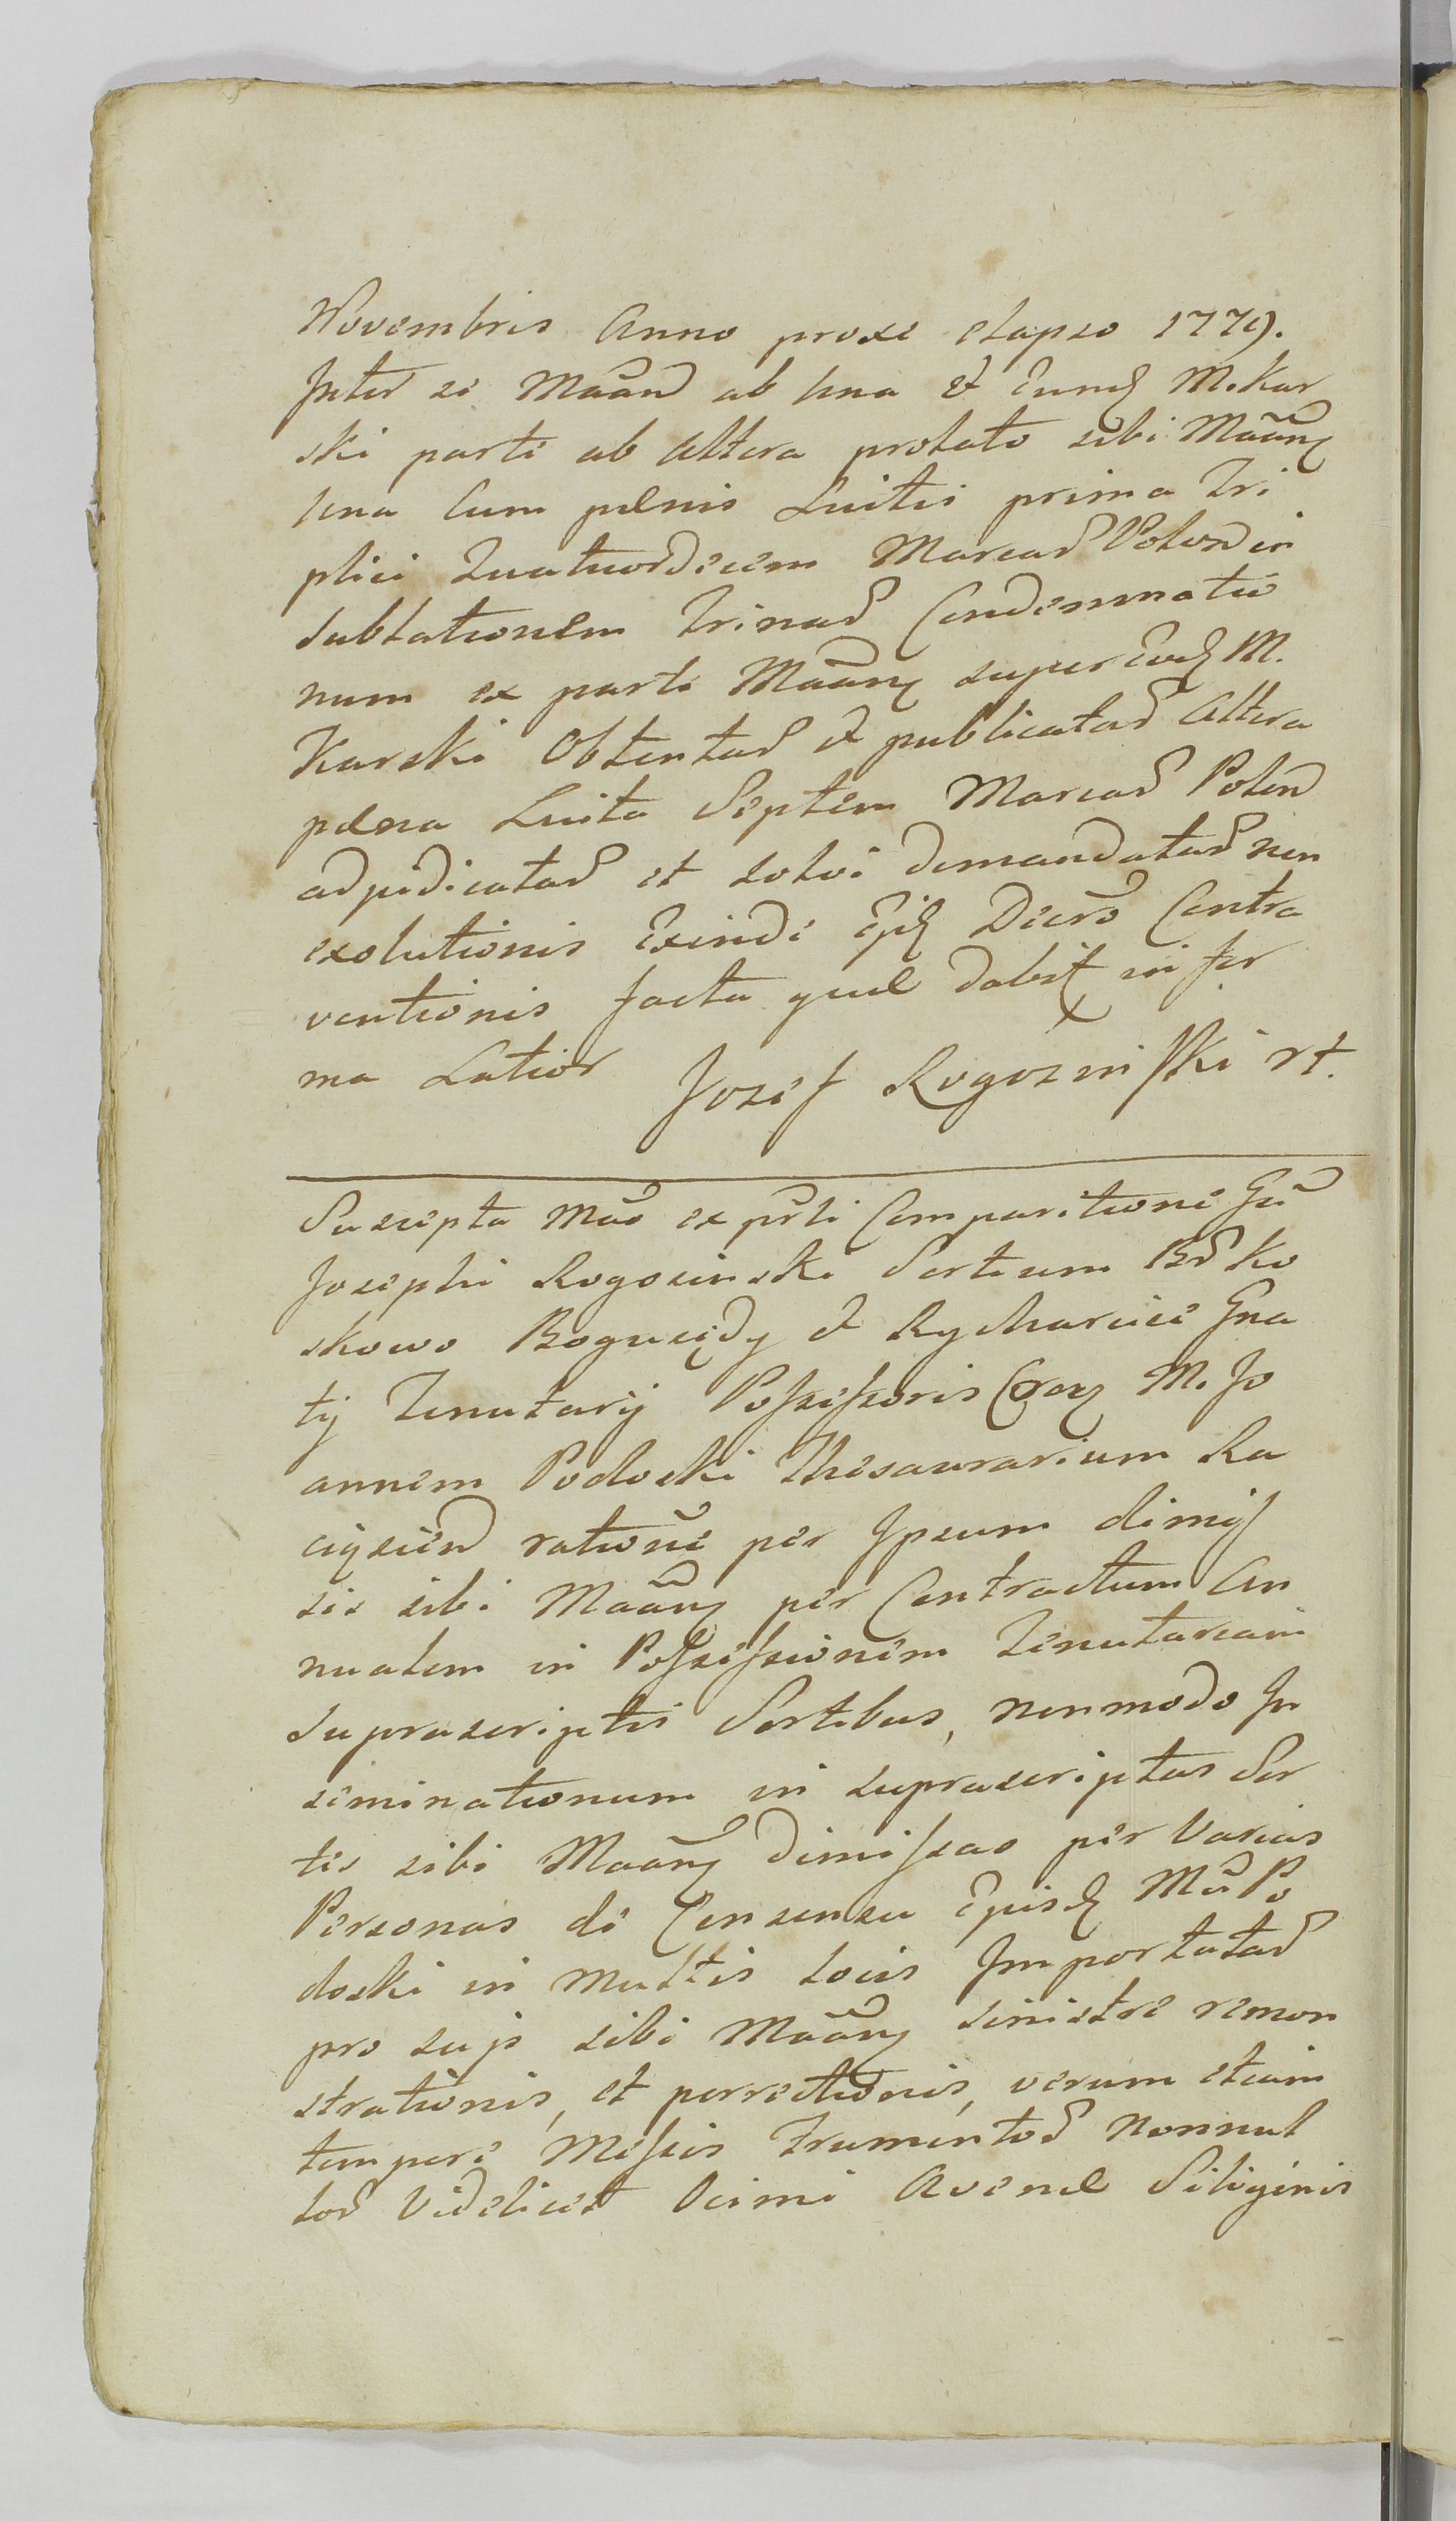 Novembris Anno proxe elapso 1779.
Inter se Mãan ab una et Eund M. Kar
ski parte ab altera prolato sibi Mãan
una cum pænis Luitis prima Tri
plici Quatuordecem Marcar Polon in
sublationem Trinar Condemnatio
num ex parte Mãan super Eod M.
Karski Obtentar et publicatar Altera
pæna Luita Septem Marcar Polon
adjudicatar et solvi demandatar non
exolutionis Exinde Ejd Decro Contra
ventionis facta quæ dabit in for
ma Latior Jozef Rogozinski rt.
Suscepta Mão ex prti Comparitione Gn
Josephi Rogozinski Sortium Br Ko
skowo Boguzędy et Rycharcice Gna
ty Tenutarij Possessoris Cora M. Jo
annem Podoski Thesaurarium Ra
ciązien ratione per Ipsum dimis
sis sibi Mãan per Contractum An
nualem in Possessionem Tenutariam
suprascriptis Sortibus, non modo In
seminationum in suprascriptas Sor
tes sibi Mãan dimissas per Varias
Personas de Consensu Ejusd Mã Po
doski in multis locis Importatar
pro suis sibi Mãan sinistre remon
strationis, et porrectionis, verum etiam
tempore Messis Frumentor Nonnul
lor Videlicet Ocimi Avenæ Siliginis